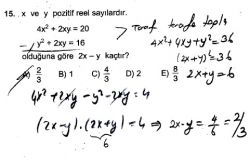 15. x ve y pozitif reel sayılardır.
4x² + 2xy = 20
y² + 2xy = 16
olduğuna göre 2x – y kaçtır?
A) 2/3 B) 1 C) 4/3 D) 2 E) 8/3
Taraf tarafa topla
4x² + 4xy + y² = 36
(2x+y)² = 36
2x + y = 6
4x² + 2xy - y² - 2xy = 4
(2x-y).(2x+y) = 4 ⇒ 2x-y = 4/6 = 2/3
6